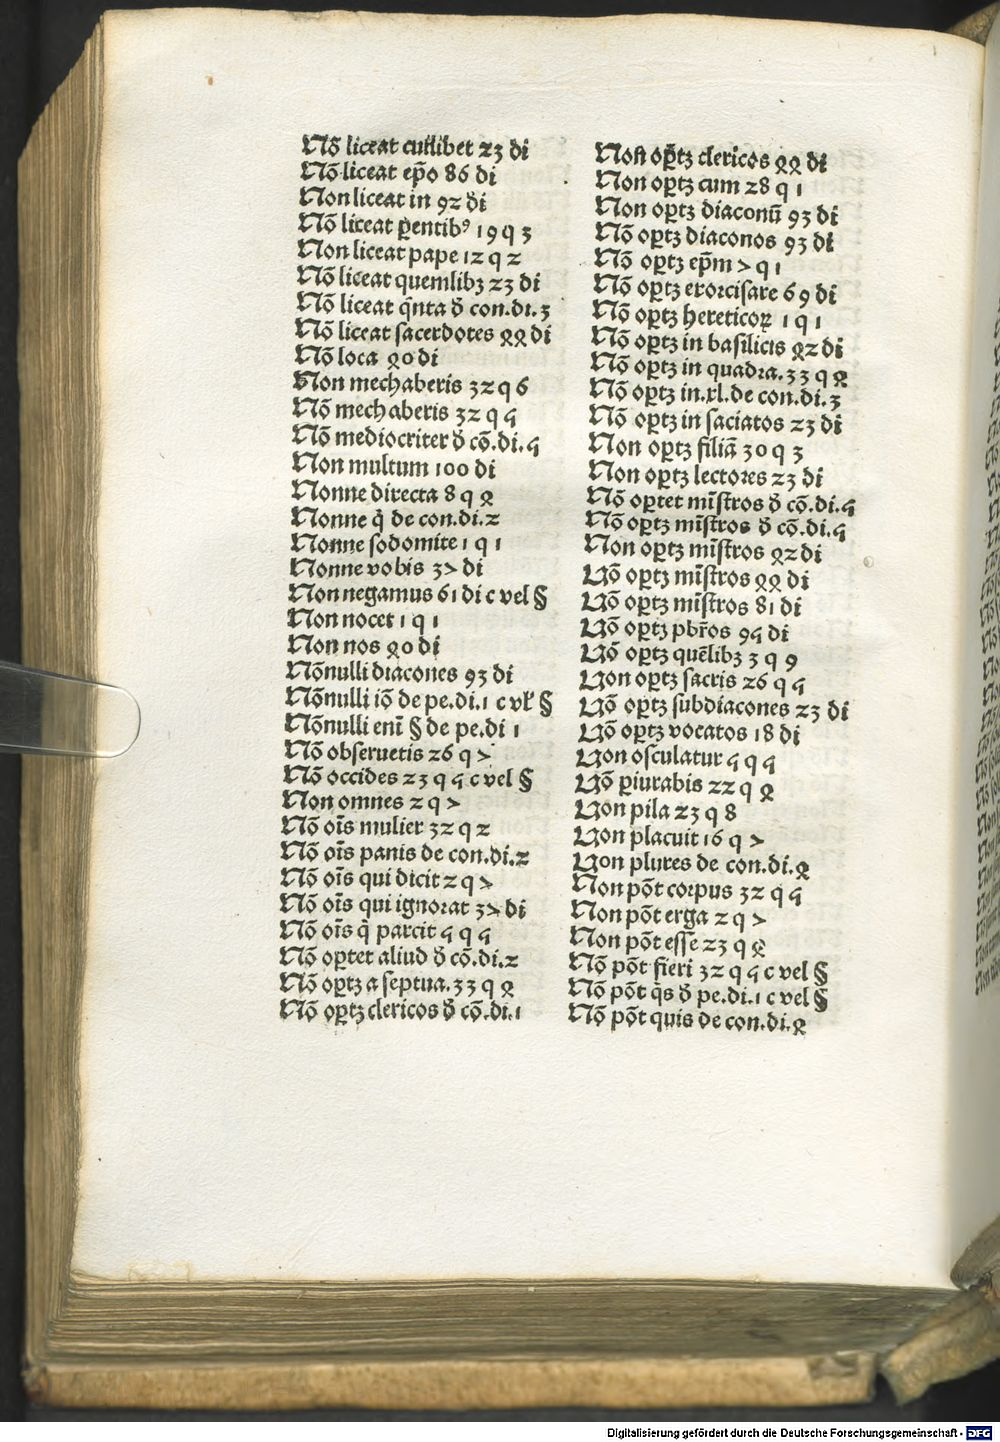 Nō liceat cuilibet 23 di
Nō liceat ep̄o 86 di
Non liceat in 92 di
Nō liceat p̲entibꝰ 19 q 3
Non liceat pape 12 q 2
Nō liceat quemlibꝫ 23 di
Nō liceat q̄nta ð con.di.3
Nō liceat sacerdotes ꝝꝝ di
Nō loca ꝝ0 di
Non mechaberis 32 q 6
Nō mechaberis 32 q 4
Nō mediocriter ð cō.di.4
Non multum 100 di
Nonne directa 8 q ꝝ
Nonne q̄ de con.di.2
Nonne sodomite 1 q 1
Nonne vobis 37 di
Non negamus 61 di c vel §
Non nocet 1 q 1
Non nos ꝝ0 di
Nōnulli diacones 93 di
Nōnulli iō de pe.di.1 c vl̓ §
Nōnulli enī § de pe.di 1
Nō obseruetis 26 q 7
Nō occides 23 q 4 c vel §
Non omnes 2 q 7
Nō oīs mulier 32 q 2
Nō oīs panis de con.di.2
Nō oīs qui dicit 2 q 7
Nō oīs qui ignorat 37 di
Nō oīs q̄ parcit 4 q 4
Nō oꝑtet aliud ð cō.di.2
Nō oꝑtꝫ a septua.33 q ꝝ
Nō oꝑtꝫ clericos ð cō.di.1
Non oꝑtꝫ clericos ꝝꝝ di
Non oꝑtꝫ cum 28 q 1
Non oꝑtꝫ diaconū 93 di
Nō oꝑtꝫ diaconos 93 di
Nō oꝑtꝫ ep̄m 7 q 1
Nō oꝑtꝫ exorcisare 69 di
Nō oꝑtꝫ hereticoꝝ 1 q 1
Nō oꝑtꝫ in basilicis ꝝ2 di
Nō oꝑtꝫ in quadra.33 q ꝝ
Nō oꝑtꝫ in.xl.de con.di.3
Nō oꝑtꝫ in saciatos 23 di
Non oꝑtꝫ filiā 30 q 3
Non oꝑtꝫ lectores 23 di
Nō oꝑtet mīstros ð cō.di.4
Nō oꝑtꝫ mīstros ð cō.di.4
Non oꝑtꝫ mīstros ꝝ2 di
Nō oꝑtꝫ mīstros ꝝꝝ di
Nō oꝑtꝫ mīstros 81 di
Nō oꝑtꝫ pbr̄os 94 di
Nō oꝑtꝫ quēlibꝫ 3 q 9
Non oꝑtꝫ sacris 26 q 4
Nō oꝑtꝫ subdiacones 23 di
Nō oꝑtꝫ vocatos 18 di
Non osculatur 4 q 4
Nō ꝑiurabis 22 q ꝝ
Non pila 23 q 8
Non placuit 16 q 7
Non plures de con.di.ꝝ
Non pōt corpus 32 q 4
Non pōt erga 2 q 7
Non pōt esse 23 q ꝝ
Nō pōt fieri 32 q 4 c vel §
Nō pōt q̄s ð pe.di.1 c vel §
Nō pōt quis de con.di.ꝝ
Digitalisierung gefördert durch die Deutsche Forschungsgemeinschaft - DFG